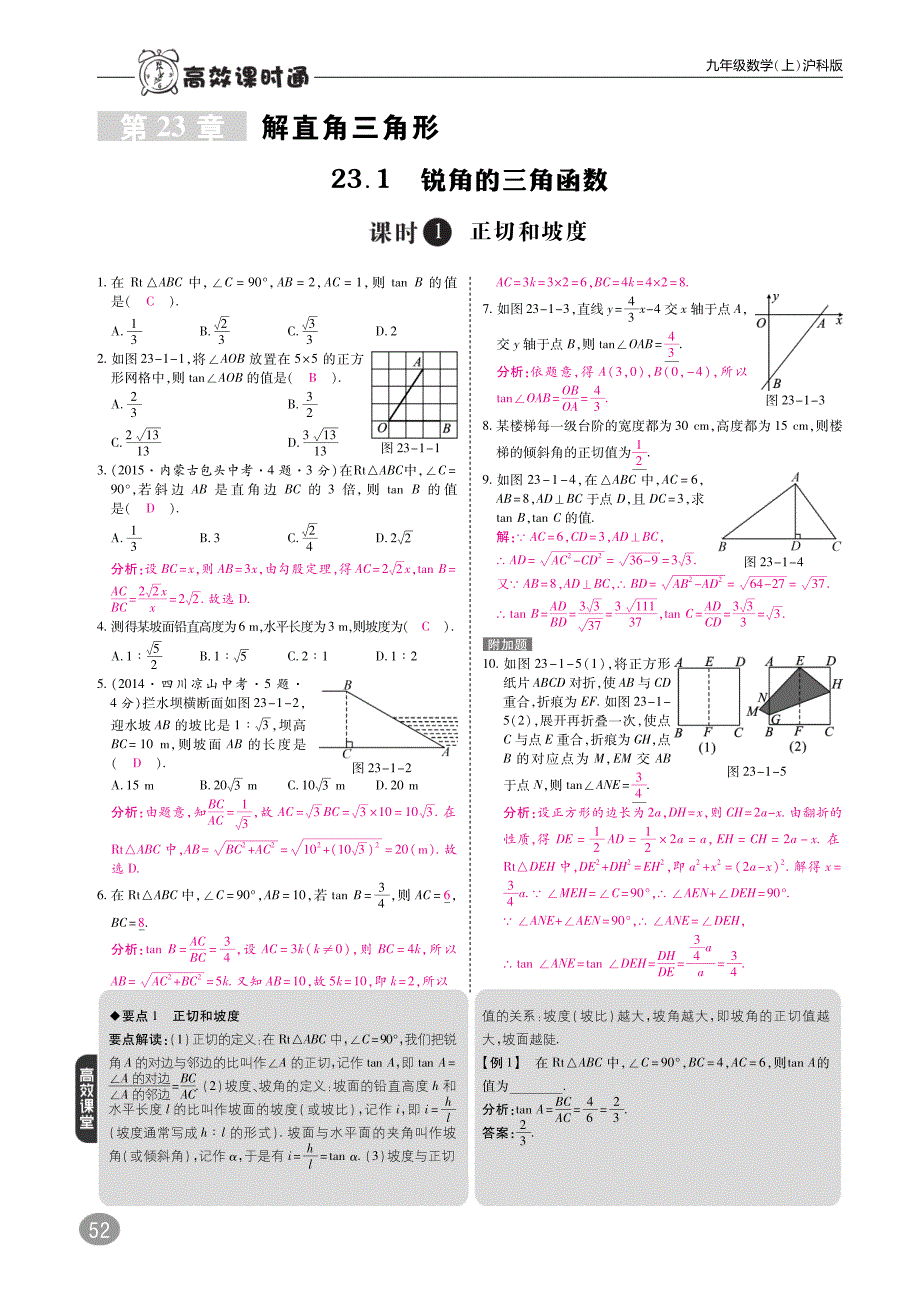 高效课时通
九年级数学(上)沪科版
第 23 章 解直角三角形
23.1 锐角的三角函数
课时 1 正切和坡度
1. 在 Rt△ABC 中,∠C=90°,AB=2,AC=1,则 tan B 的值
是( C ).
A. 1/3 B. √2/3 C. √3/3 D. 2
2. 如图23-1-1,将∠AOB 放置在 5×5 的正方
形网格中,则 tan∠AOB 的值是( B ).
A. 2/3 B. 3/2
C. 2√13/13 D. 3√13/13
A
O
B
图 23-1-1
3. (2015·内蒙古包头中考·4 题·3 分)在Rt△ABC中,∠C=
90°,若斜边 AB 是直角边 BC 的 3 倍,则 tan B 的值
是( D ).
A. 1/3 B. 3 C. √2/4 D. 2√2
分析:设 BC=x,则 AB=3x,由勾股定理,得 AC=2√2x,tan B=
AC/BC=2√2x/x=2√2. 故选 D.
4. 测得某坡面铅直高度为6 m,水平长度为3 m,则坡度为( C ).
A. 1∶√5/2 B. 1∶√5 C. 2∶1 D. 1∶2
5. (2014·四川凉山中考·5 题·
4 分)拦水坝横断面如图23-1-2,
迎水坡 AB 的坡比是 1∶√3,坝高
BC=10 m,则坡面 AB 的长度是
( D ).
B
C
A
图 23-1-2
A. 15 m B. 20√3 m C. 10√3 m D. 20 m
分析:由题意,知BC/AC=1/√3,故 AC=√3BC=√3×10=10√3. 在
Rt△ABC 中,AB=√(BC²+AC²)=√(10²+(10√3)²)=20(m). 故
选 D.
6. 在 Rt△ABC 中,∠C=90°,AB=10,若 tan B=3/4,则 AC=6,
BC=8.
分析:tan B=AC/BC=3/4,设 AC=3k(k≠0),则 BC=4k,所以
AB=√(AC²+BC²)=5k. 又知 AB=10,故 5k=10,即 k=2,所以
AC=3k=3×2=6,BC=4k=4×2=8.
7. 如图 23-1-3,直线 y=4/3x-4 交 x 轴于点 A,
交 y 轴于点 B,则 tan∠OAB=4/3.
分析:依题意,得 A(3,0),B(0,-4),所以
tan∠OAB=OB/OA=4/3.
y
O
A
x
B
图 23-1-3
8. 某楼梯每一级台阶的宽度都为 30 cm,高度都为 15 cm,则楼
梯的倾斜角的正切值为1/2.
9. 如图 23-1-4,在△ABC 中,AC=6,
AB=8,AD⊥BC 于点 D,且 DC=3,求
tan B,tan C 的值.
A
B
D
C
图 23-1-4
解:∵ AC=6,CD=3,AD⊥BC,
∴ AD=√(AC²-CD²)=√(36-9)=3√3.
又∵ AB=8,AD⊥BC,∴ BD=√(AB²-AD²)=√(64-27)=√37.
∴ tan B=AD/BD=3√3/√37=3√111/37,tan C=AD/CD=3√3/3=√3.
附加题
10. 如图 23-1-5(1),将正方形
纸片 ABCD 对折,使 AB 与 CD
重合,折痕为 EF. 如图 23-1-
5(2),展开再折叠一次,使点
C 与点 E 重合,折痕为 GH,点
B 的对应点为 M,EM 交 AB
于点 N,则 tan∠ANE=3/4.
A E D
B F C
(1)
A E D
H
N
M
G
B F C
(2)
图 23-1-5
分析:设正方形的边长为 2a,DH=x,则 CH=2a-x. 由翻折的
性质,得 DE=1/2AD=1/2×2a=a,EH=CH=2a-x. 在
Rt△DEH 中,DE²+DH²=EH²,即 a²+x²=(2a-x)². 解得 x=
3/4a. ∵ ∠MEH=∠C=90°,∴ ∠AEN+∠DEH=90°.
∵ ∠ANE+∠AEN=90°,∴ ∠ANE=∠DEH,
∴ tan ∠ANE=tan ∠DEH=DH/DE=(3/4a)/a=3/4.
高效课堂
◆要点 1 正切和坡度
要点解读:(1)正切的定义:在 Rt△ABC 中,∠C=90°,我们把锐
角 A 的对边与邻边的比叫作∠A 的正切,记作 tan A,即 tan A=
∠A 的对边/∠A 的邻边=BC/AC. (2)坡度、坡角的定义:坡面的铅直高度 h 和
水平长度 l 的比叫作坡面的坡度(或坡比),记作 i,即 i=h/l
(坡度通常写成 h∶l 的形式). 坡面与水平面的夹角叫作坡
角(或倾斜角),记作 α,于是有 i=h/l=tan α. (3)坡度与正切
值的关系:坡度(坡比)越大,坡角越大,即坡角的正切值越
大,坡面越陡.
【例 1】 在 Rt△ABC 中,∠C=90°,BC=4,AC=6,则tan A的
值为________.
分析:tan A=BC/AC=4/6=2/3.
答案:2/3.
52